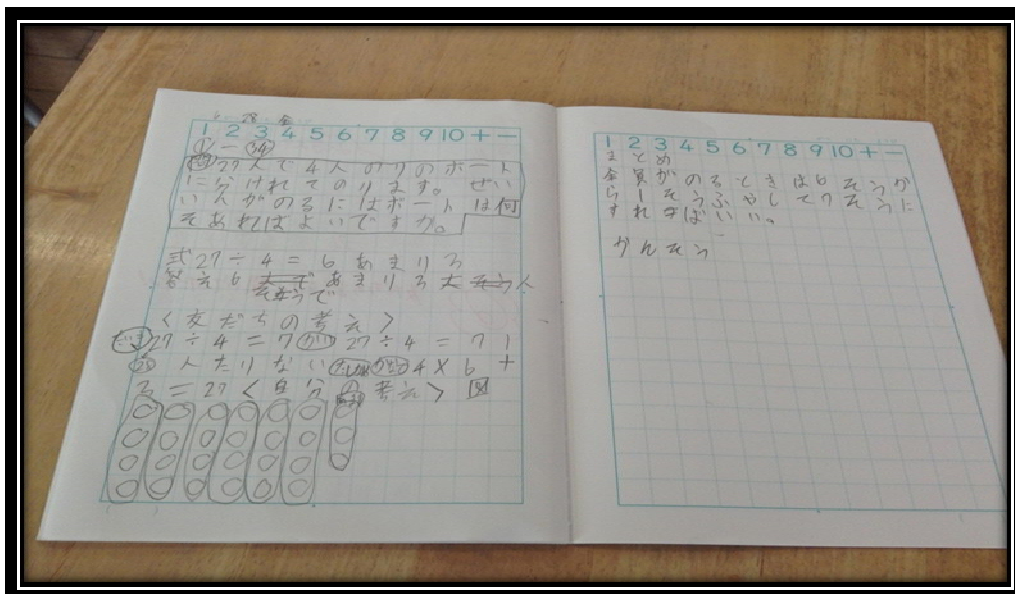 28 金
1 2 3 4 5 6 7 8 9 10 + −
27人で4人のりのボート
に分けれてのります。ぜい
いんがのるにはボートは何
そあればよいですか。
式27÷4=6あまり3
答え6 あまり3 人
そうで
<友だちの考え>
27÷4=7 27÷4=7 1
人たりない 4×6+
3=27<自分の考え>図
1 2 3 4 5 6 7 8 9 10 + −
まとめ
全員がのるときは6そうか
ら1そうふやして7そうに
すればいい。
かんそう